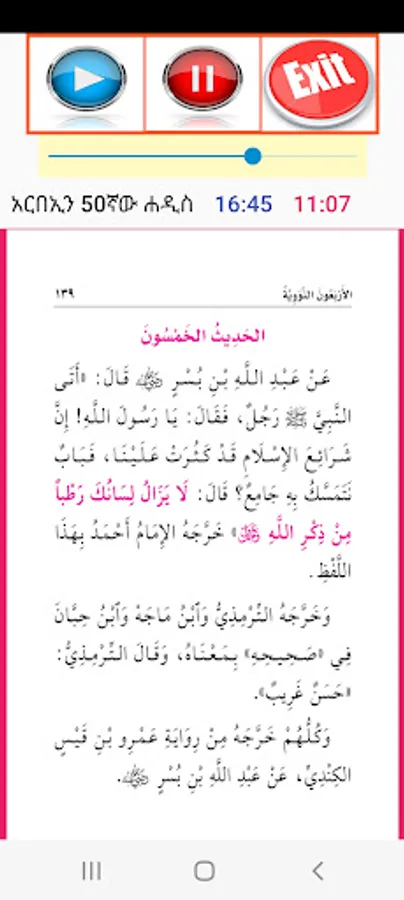 Exit
አርበኢን 50ኛው ሐዲስ 16:45 11:07
الأَرْبَعُونَ النَّوَوِيَّةُ ١٣٩
الحَدِيثُ الخَمْسُونَ
عَنْ عَبْدِ اللَّهِ بْنِ بُسْرٍ رضي الله عنه قَالَ: «أَتَى
النَّبِيَّ ﷺ رَجُلٌ، فَقَالَ: يَا رَسُولَ اللَّهِ! إِنَّ
شَرَائِعَ الإِسْلَامِ قَدْ كَثُرَتْ عَلَيْنَا، فَبَابٌ
نَتَمَسَّكُ بِهِ جَامِعٌ؟ قَالَ: لَا يَزَالُ لِسَانُكَ رَطْباً
مِنْ ذِكْرِ اللَّهِ ﷻ» خَرَّجَهُ الإِمَامُ أَحْمَدُ بِهَذَا
اللَّفْظِ.
وَخَرَّجَهُ التِّرْمِذِيُّ وَٱبْنُ مَاجَهْ وَٱبْنُ حِبَّانَ
فِي «صَحِيحِهِ» بِمَعْنَاهُ، وَقَالَ التِّرْمِذِيُّ:
«حَسَنٌ غَرِيبٌ».
وَكُلُّهُمْ خَرَّجَهُ مِنْ رِوَايَةِ عَمْرِو بْنِ قَيْسٍ
الكِنْدِيِّ، عَنْ عَبْدِ اللَّهِ بْنِ بُسْرٍ رضي الله عنه.